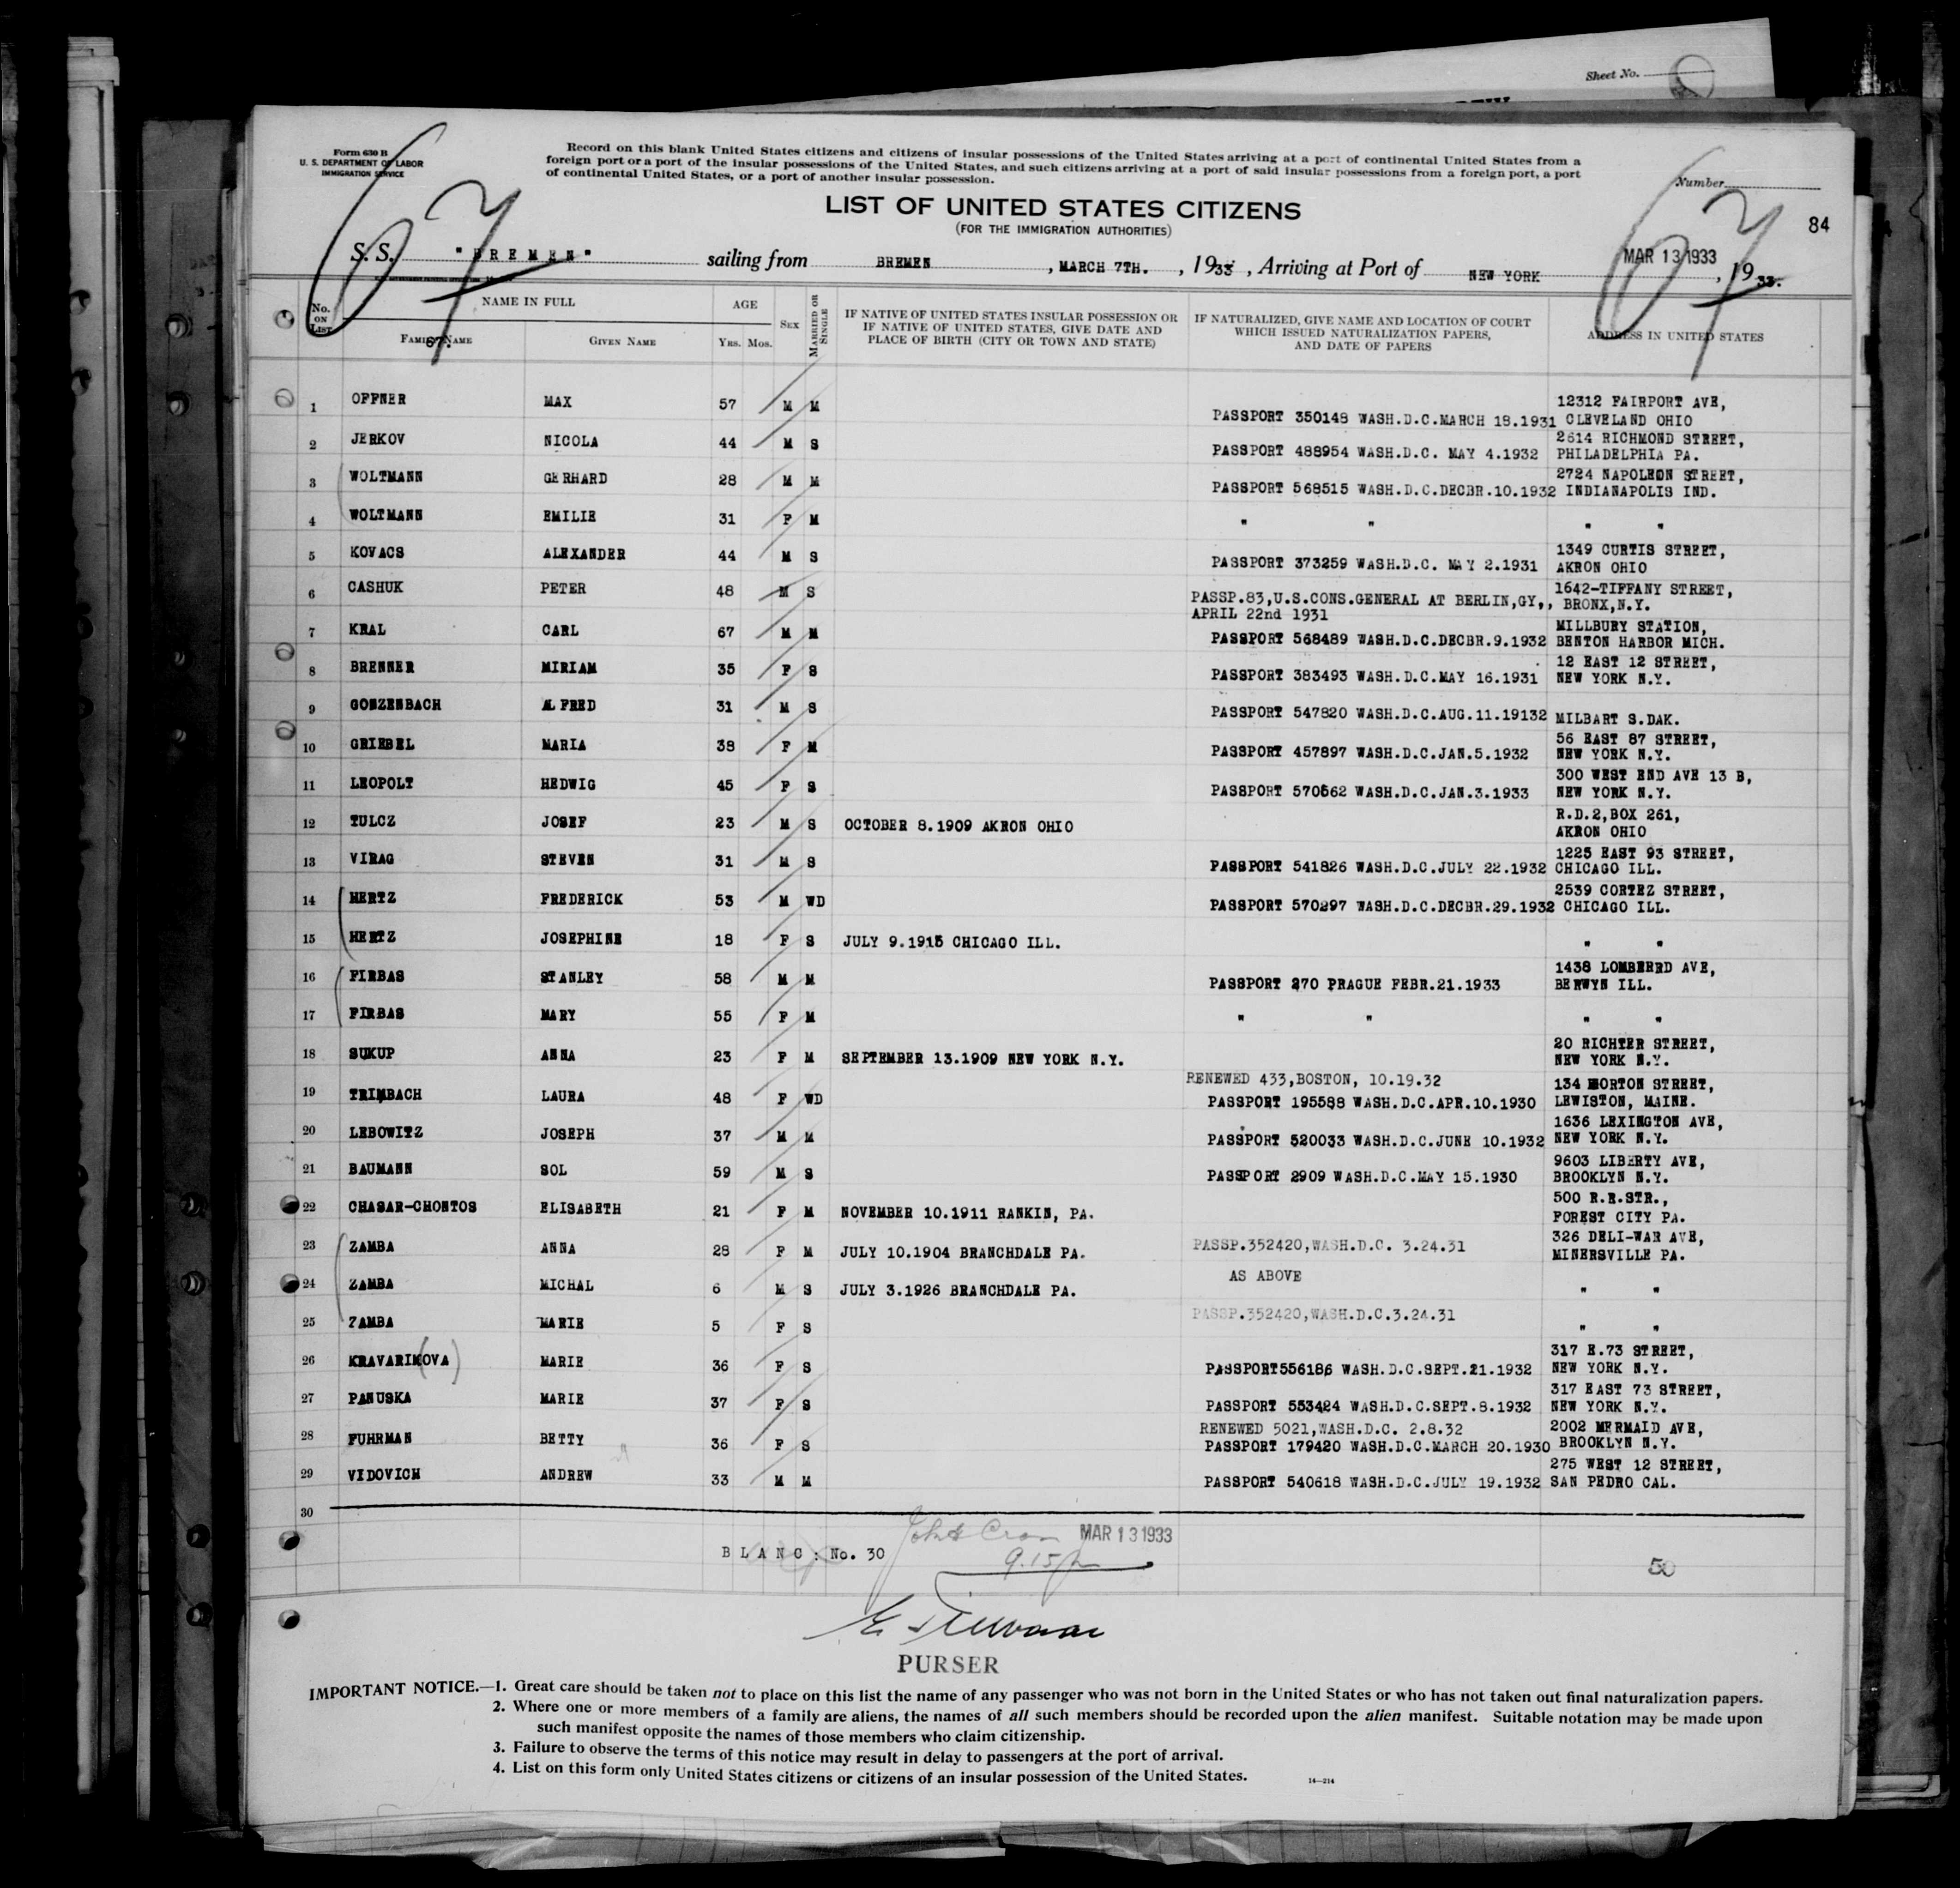 Sheet No.
Form 630 B
U. S. DEPARTMENT OF LABOR
IMMIGRATION SERVICE
Record on this blank United States citizens and citizens of insular possessions of the United States arriving at a port of continental United States from a
foreign port or a port of the insular possessions of the United States, and such citizens arriving at a port of said insular possessions from a foreign port, a port
of continental United States, or a port of another insular possession.
Number
67
67
84
LIST OF UNITED STATES CITIZENS
(FOR THE IMMIGRATION AUTHORITIES)
S. S. "BREMEN" sailing from BREMEN, MARCH 7TH., 1933, Arriving at Port of NEW YORK MAR 13 1933, 1933.
No. ON LIST NAME IN FULL FAMILY NAME GIVEN NAME AGE YRS. MOS. SEX MARRIED OR SINGLE
IF NATIVE OF UNITED STATES INSULAR POSSESSION OR
IF NATIVE OF UNITED STATES, GIVE DATE AND
PLACE OF BIRTH (CITY OR TOWN AND STATE)
IF NATURALIZED, GIVE NAME AND LOCATION OF COURT
WHICH ISSUED NATURALIZATION PAPERS,
AND DATE OF PAPERS
ADDRESS IN UNITED STATES
67.
1 OFFNER MAX 57 M M PASSPORT 350148 WASH.D.C.MARCH 18.1931 12312 FAIRPORT AVE,
CLEVELAND OHIO
2 JERKOV NICOLA 44 M S PASSPORT 488954 WASH.D.C. MAY 4.1932 2614 RICHMOND STREET,
PHILADELPHIA PA.
3 WOLTMANN GERHARD 28 M M PASSPORT 568515 WASH.D.C.DECBR.10.1932 2724 NAPOLEON STREET,
INDIANAPOLIS IND.
4 WOLTMANN EMILIE 31 F M " " " "
5 KOVACS ALEXANDER 44 M S PASSPORT 373259 WASH.D.C. MAY 2.1931 1349 CURTIS STREET,
AKRON OHIO
6 CASHUK PETER 48 M S PASSP.83,U.S.CONS.GENERAL AT BERLIN,GY,, 1642-TIFFANY STREET,
APRIL 22nd 1931 BRONX,N.Y.
7 KRAL CARL 67 M M PASSPORT 568489 WASH.D.C.DECBR.9.1932 MILLBURY STATION,
BENTON HARBOR MICH.
8 BRENNER MIRIAM 35 F S PASSPORT 383493 WASH.D.C.MAY 16.1931 12 EAST 12 STREET,
NEW YORK N.Y.
9 GONZENBACH ALFRED 31 M S PASSPORT 547820 WASH.D.C.AUG.11.19132 MILBART S.DAK.
10 GRIEBEL MARIA 38 F M PASSPORT 457897 WASH.D.C.JAN.5.1932 56 EAST 87 STREET,
NEW YORK N.Y.
11 LEOPOLT HEDWIG 45 F S PASSPORT 570662 WASH.D.C.JAN.3.1933 300 WEST END AVE 13 B,
NEW YORK N.Y.
12 TULCZ JOSEF 23 M S OCTOBER 8.1909 AKRON OHIO R.D.2,BOX 261,
AKRON OHIO
13 VIRAG STEVEN 31 M S PASSPORT 541826 WASH.D.C.JULY 22.1932 1225 EAST 93 STREET,
CHICAGO ILL.
14 HERTZ FREDERICK 53 M WD PASSPORT 570297 WASH.D.C.DECBR.29.1932 2539 CORTEZ STREET,
CHICAGO ILL.
15 HERTZ JOSEPHINE 18 F S JULY 9.1915 CHICAGO ILL. " "
16 FIRBAS STANLEY 58 M M PASSPORT 270 PRAGUE FEBR.21.1933 1438 LOMBERRD AVE,
BERWYN ILL.
17 FIRBAS MARY 55 F M " " " "
18 SUKUP ANNA 23 F M SEPTEMBER 13.1909 NEW YORK N.Y. 20 RICHTER STREET,
NEW YORK N.Y.
RENEWED 433,BOSTON, 10.19.32
19 TRIMBACH LAURA 48 F WD PASSPORT 195588 WASH.D.C.APR.10.1930 134 HORTON STREET,
LEWISTON, MAINE.
20 LEBOWITZ JOSEPH 37 M M PASSPORT 520033 WASH.D.C.JUNE 10.1932 1636 LEXINGTON AVE,
NEW YORK N.Y.
21 BAUMANN SOL 59 M S PASSPORT 2909 WASH.D.C.MAY 15.1930 9603 LIBERTY AVE,
BROOKLYN N.Y.
22 CHASAR-CHONTOS ELISABETH 21 F M NOVEMBER 10.1911 RANKIN, PA. 500 R.R.STR.,
FOREST CITY PA.
23 ZAMBA ANNA 28 F M JULY 10.1904 BRANCHDALE PA. PASSP.352420,WASH.D.C. 3.24.31 326 DELI-WAR AVE,
MINERSVILLE PA.
24 ZAMBA MICHAL 6 M S JULY 3.1926 BRANCHDALE PA. AS ABOVE " "
25 ZAMBA MARIE 5 F S PASSP.352420,WASH.D.C.3.24.31 " "
26 KRAVARIK(OVA) MARIE 36 F S PASSPORT556186 WASH.D.C.SEPT.21.1932 317 E.73 STREET,
NEW YORK N.Y.
27 PANUSKA MARIE 37 F S PASSPORT 553424 WASH.D.C.SEPT.8.1932 317 EAST 73 STREET,
NEW YORK N.Y.
RENEWED 5021,WASH.D.C. 2.8.32
28 FUHRMAN BETTY 36 F S PASSPORT 179420 WASH.D.C.MARCH 20.1930 2002 MERMAID AVE,
BROOKLYN N.Y.
29 VIDOVICH ANDREW 33 M M PASSPORT 540618 WASH.D.C.JULY 19.1932 275 WEST 12 STREET,
SAN PEDRO CAL.
30
MAR 13 1933
BLANC: No. 30 9.15
50
PURSER
IMPORTANT NOTICE.—1. Great care should be taken not to place on this list the name of any passenger who was not born in the United States or who has not taken out final naturalization papers.
2. Where one or more members of a family are aliens, the names of all such members should be recorded upon the alien manifest. Suitable notation may be made upon
such manifest opposite the names of those members who claim citizenship.
3. Failure to observe the terms of this notice may result in delay to passengers at the port of arrival.
4. List on this form only United States citizens or citizens of an insular possession of the United States.
14—214